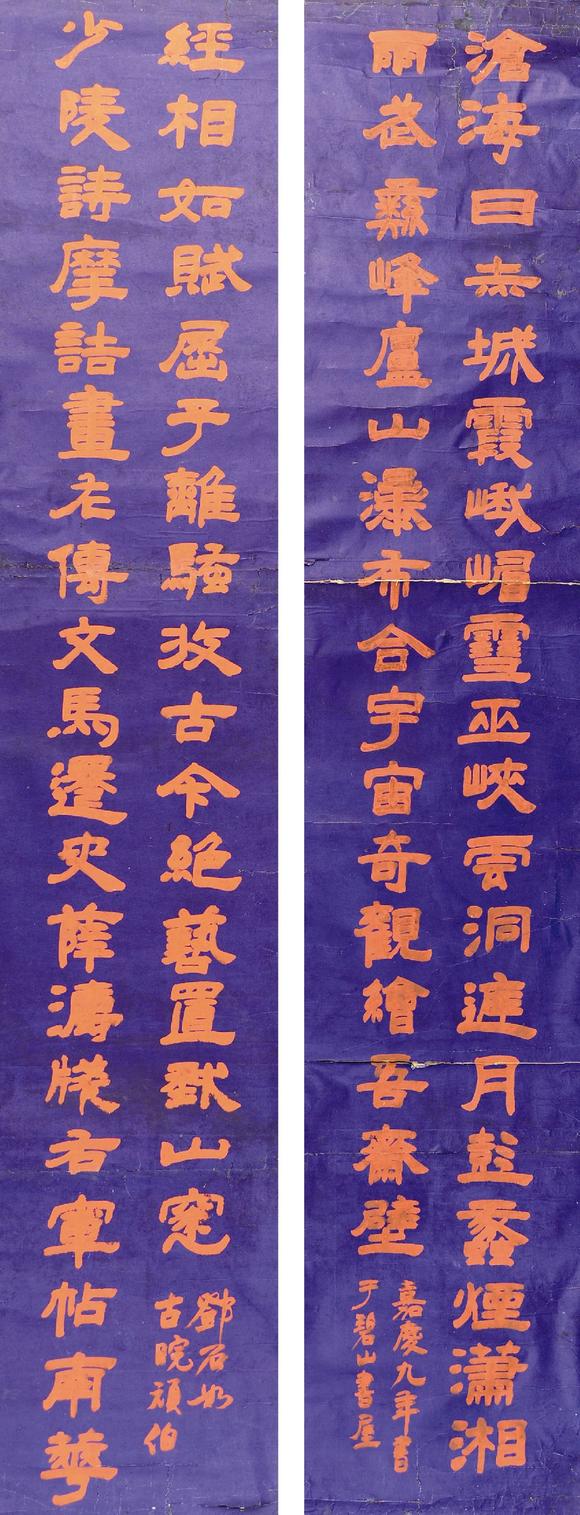 滄海日赤城霞峨嵋雪巫峽雲洞庭月彭蠡煙瀟湘
雨武彝峰廬山瀑布合宇宙奇觀繪吾齋壁
嘉慶九年書
于碧山書屋
少陵詩摩詰畫左傳文馬遷史薛濤牋右軍帖南華
經相如賦屈子離騷收古今絕藝置我山窓
鄧石如
古皖頑伯